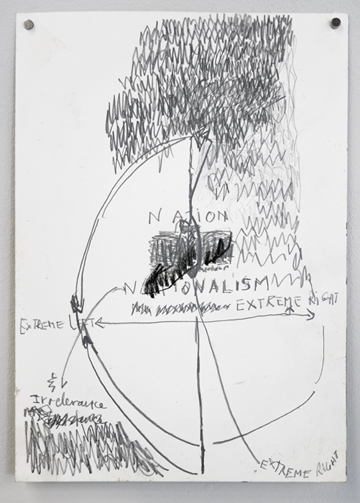 NATION
NATIONALISM
EXTREME RIGHT
EXTREME LEFT
Irrelevance
EXTREME RIGHT